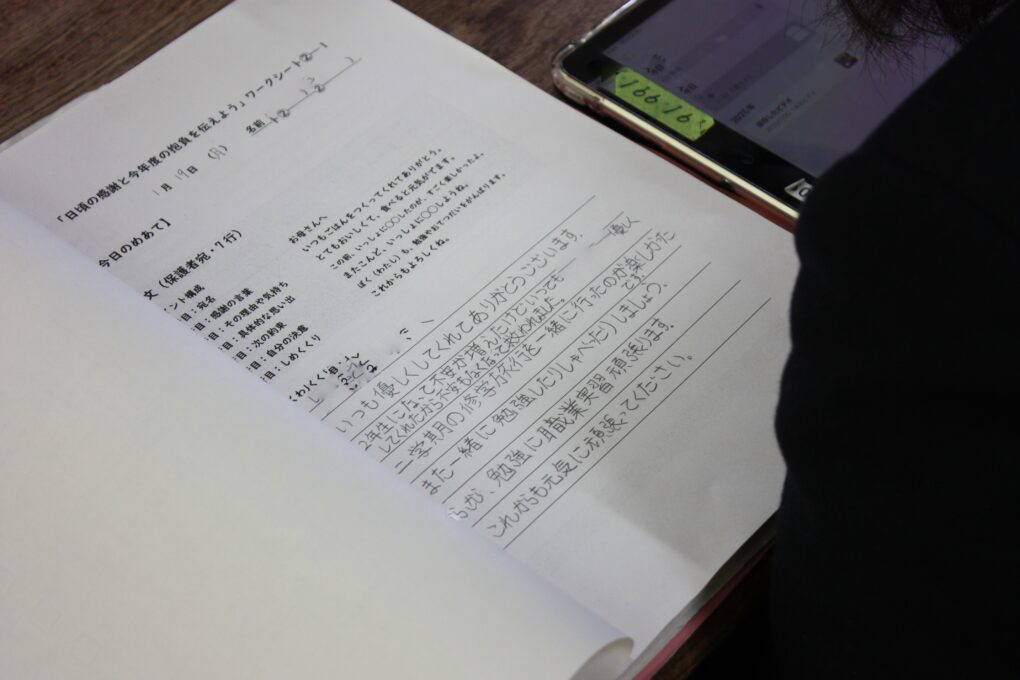 「日頃の感謝と今年度の抱負を伝えよう」ワークシート②-1
1月19日(月)
名前
今日のめあて】
文(保護者宛・7行)
イント構成
目:宛名
目:感謝の言葉
目:その理由や気持ち
目:具体的な思い出
目:次の約束
目:自分の決意
目:しめくくり
お母さんへ
いつもごはんをつくってくれてありがとう。
とてもおいしくて、食べると元気がでます。
この前、いっしょに〇〇したのが、すごく楽しかったよ。
またこんど、いっしょに〇〇しようね。
ぼく(わたし)も、勉強やおてつだいをがんばります。
これからもよろしくね。
いつも優しくしてくれてありがとうございます。
2年生になって不安が増えたけどいつでも
してくれたから不安もなくなって救われました。
二学期の修学旅行を一緒に行ったのが楽しかった
です。
また一緒に勉強したりしゃべったりしましょう。
勉強に職業実習頑張ります。
これからも元気に頑張ってください。
166-16
2025年